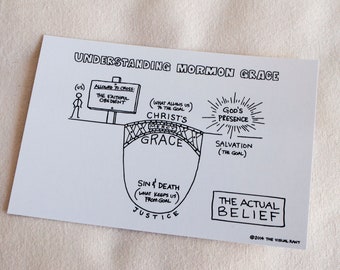 UNDERSTANDING MORMON GRACE
(US)
ALLOWED TO CROSS:
THE FAITHFUL
OBEDIENT
(WHAT ALLOWS US
TO THE GOAL)
CHRIST'S
GRACE
GOD'S
PRESENCE
SALVATION
(THE GOAL)
SIN & DEATH
(WHAT KEEPS US
FROM GOAL)
JUSTICE
THE ACTUAL
BELIEF
©2014 THE VISUAL RANT